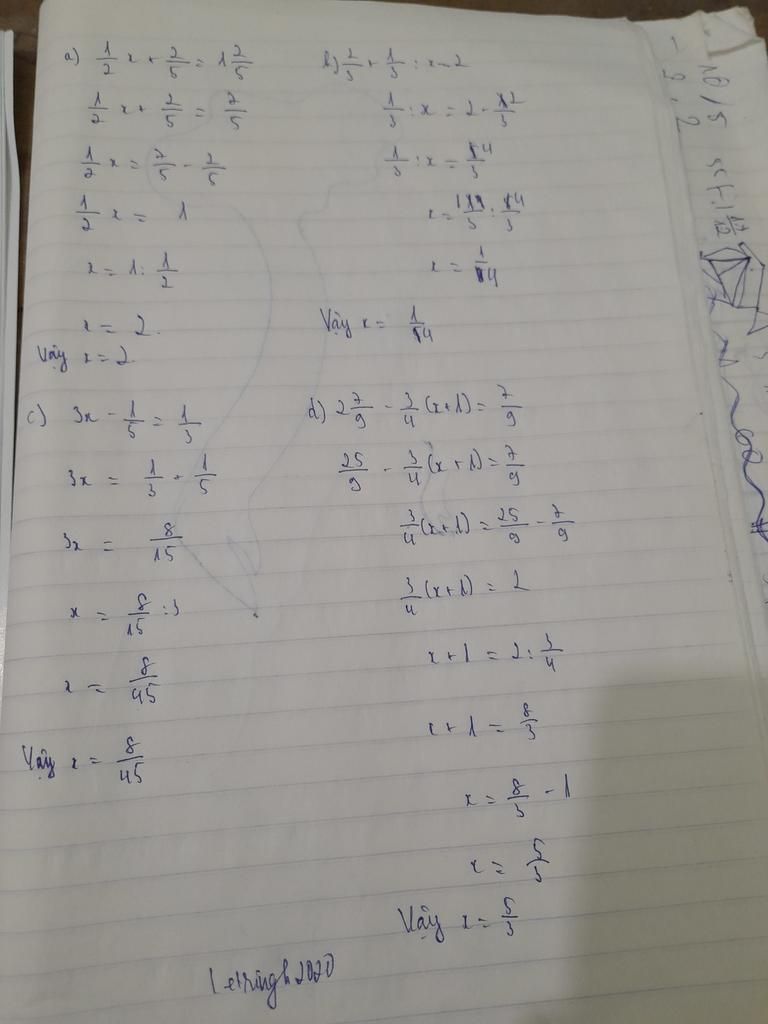 a) 1/2 x + 2/5 = 1 2/5
1/2 x + 2/5 = 7/5
1/2 x = 7/5 - 2/5
1/2 x = 1
x = 1 : 1/2
x = 2.
Vậy x = 2
b) 2/3 + 1/3 : x = 2
1/3 : x = 2 - 2/3
1/3 : x = 4/3
x = 1/3 : 4/3
x = 1/4
Vậy x = 1/4
c) 3x - 1/5 = 1/3
3x = 1/3 + 1/5
3x = 8/15
x = 8/15 : 3
x = 8/45
Vậy x = 8/45
d) 2 7/9 - 3/4 (x+1) = 7/9
25/9 - 3/4 (x+1) = 7/9
3/4 (x+1) = 25/9 - 7/9
3/4 (x+1) = 2
x + 1 = 2 : 3/4
x + 1 = 8/3
x = 8/3 - 1
x = 5/3
Vậy x = 5/3